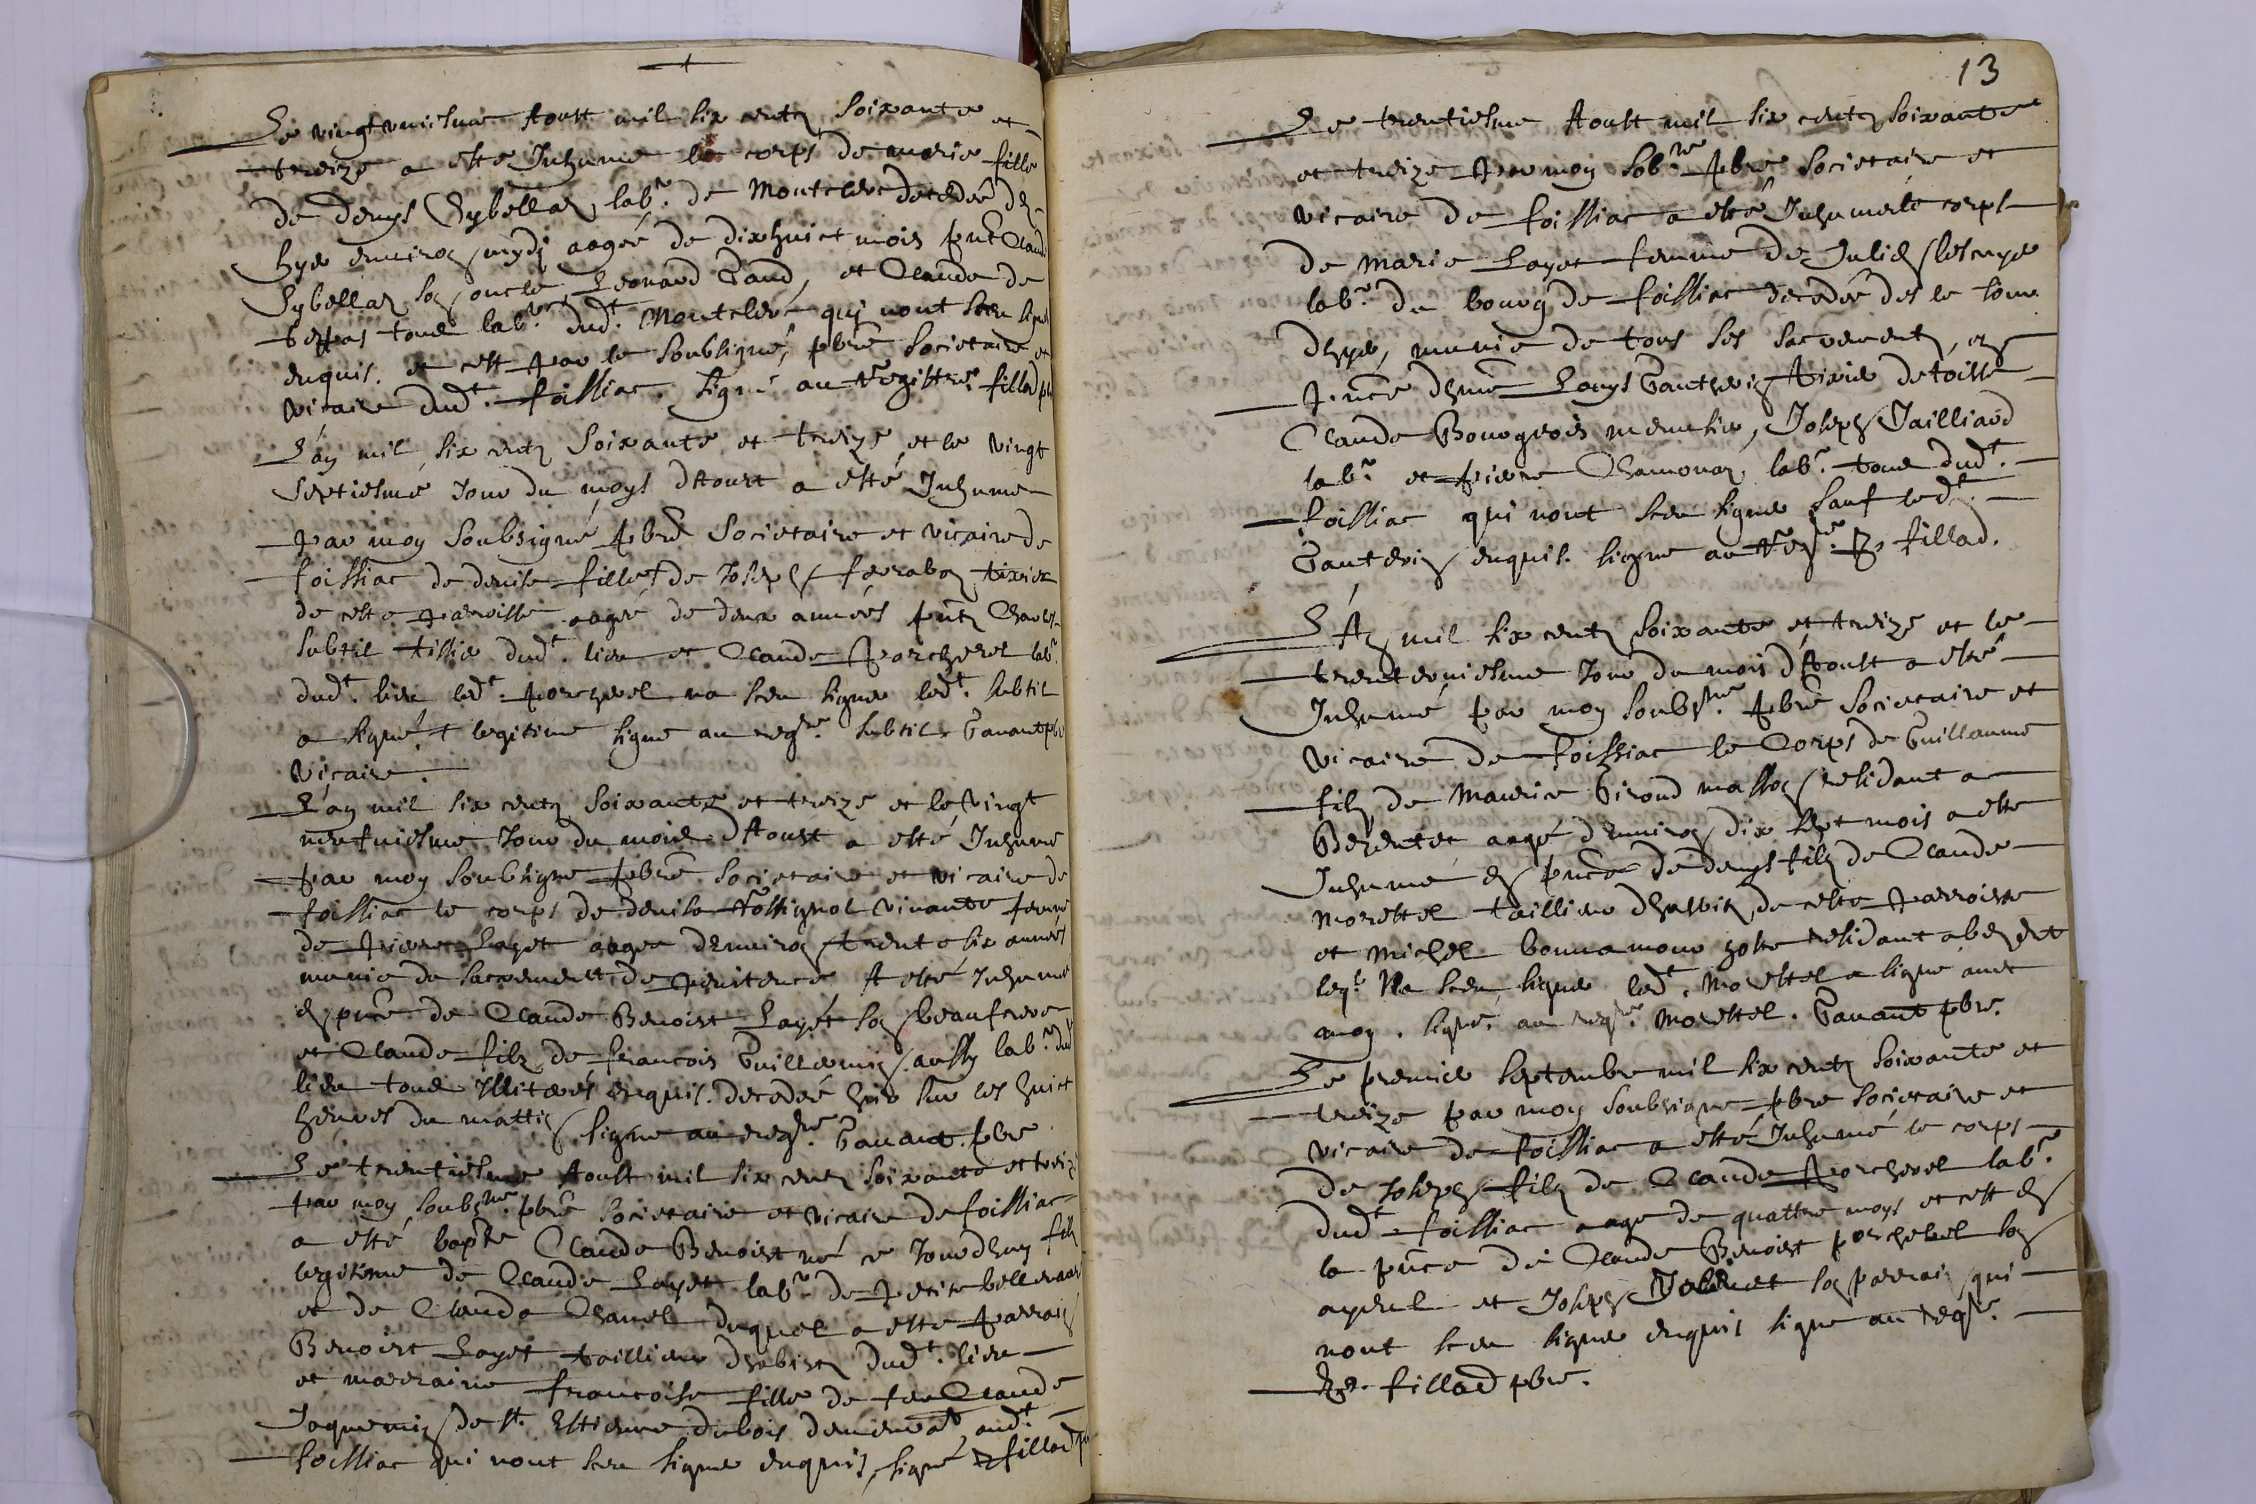 Le vingtuniesme Aoust mil six centz soixante et
treize a esté Inhumé le corps de marie fille
de denys Sybellaz lab.r de Montcler decedée dez
hyer environ mydi aagée de dixhuict mois pnt Claude
Sybellaz son oncle Leonard Gaud, et Claude de
tous lab.rs dud.t Montcler qui nont sceu signer
enquis. et cest par le soubsigné, pbre societaire et
vicaire dud.t foissiac. signé au registre. fillod pbre
L'an mil six centz soixante et treize et le vingt
septiesme Jour du moys dAoust a esté Inhumé
par moy soubsigné pbre societaire et vicaire de
foissiac de denise fille + de Joseph tixier
de ceste parroisse aagée de deux années pntz Charles
subtil tissier dud.t lieu et Claude porcherel lab.r
dud.t lieu led.t porcherel na sceu signer led.t subtil
a signé. + legitime signé au reg.re subtil. Gavant pbre
vicaire.
L'an mil six centz soixante et treize et le vingt
neufuiesme Jour du mois dAoust a esté Inhumé
par moy soubsigné pbre societaire et vicaire de
foissiac le corps de denise Rossignol vivante femme
de pierre Layet aagee denviron trente six années
munie du sacrement de penitence A esté Inhumé
en pnce de Claude Benoist Layet son beaufrere
et Claude filz de francois Guillermin aussy lab.rs dud
lieu tous Illiterés enquis. decedée hier sur les huict
heures du mattin signé au reg.re Gavant pbre
Le trentiesme Aoust mil six centz soixante et treize
par moy soubs.né pbre societaire et vicaire de foissiac
a esté bapte Claude Benoist né ce Jourdhuy filz
legitime de Claude Layet lab.r de petite
et de Claude Chanel duquel a esté parrain
Benoist Layet taillieur dhabitz dud.t lieu
et marraine francoise fille de feu Claude
Jaquemin de st. Estienne dubois demeurat aud.t
foissiac qui nont sceu signer enquis, signé fillod pbre
13
Le trentiesme Aoust mil six centz soixante
et treize par moy sob.né pbre societaire et
vicaire de foissiac a esté Inhumé le corps
de Marie Layet femme de Julien
lab.r du bourg de foissiac decedée des le Jour
dhyer, munie de tous ses sacrementz, en
pnce dhme Louys Gautherin tixier de toille
Claude Bourgeois menusier, Joseph Jailliard
lab.r et pierre Chamonaz lab.r tous dud.t
foissiac qui nont sceu signer sauf led.t
Gauterin enquis. signé au reg.re fillod.
L'An mil six centz soixante et treize et le
trenteuniesme Jour du mois dAoust a esté
Inhumé par moy soubs.né pbre societaire et
vicaire de foissiac le Corps de Guillaume
filz de Maurice Giroud masson residant a
aagé denviron dix sept mois a esté
Inhumé en pnce de denys filz de Claude
Morestel taillieur dhabitz de ceste parroisse
et Michel bonnamour hoste residant a
leq.l Na sceu signer led.t Morestel a signé avec
moy. signé au reg.re Morestel. Gavant pbre.
Le premier septembre mil six centz soixante et
treize par moy soubsigné pbre societaire et
vicaire de foissiac a esté Inhumé le corps
de Joseph filz de Claude porcherel lab.r
dud.t foissiac aagé de quattre moys et cest en
la pnce de Claude Benoist porcherel son
ayeul et Joseph son parrain qui
nont sceu signer enquis signé au reg.re
fillod pbre.